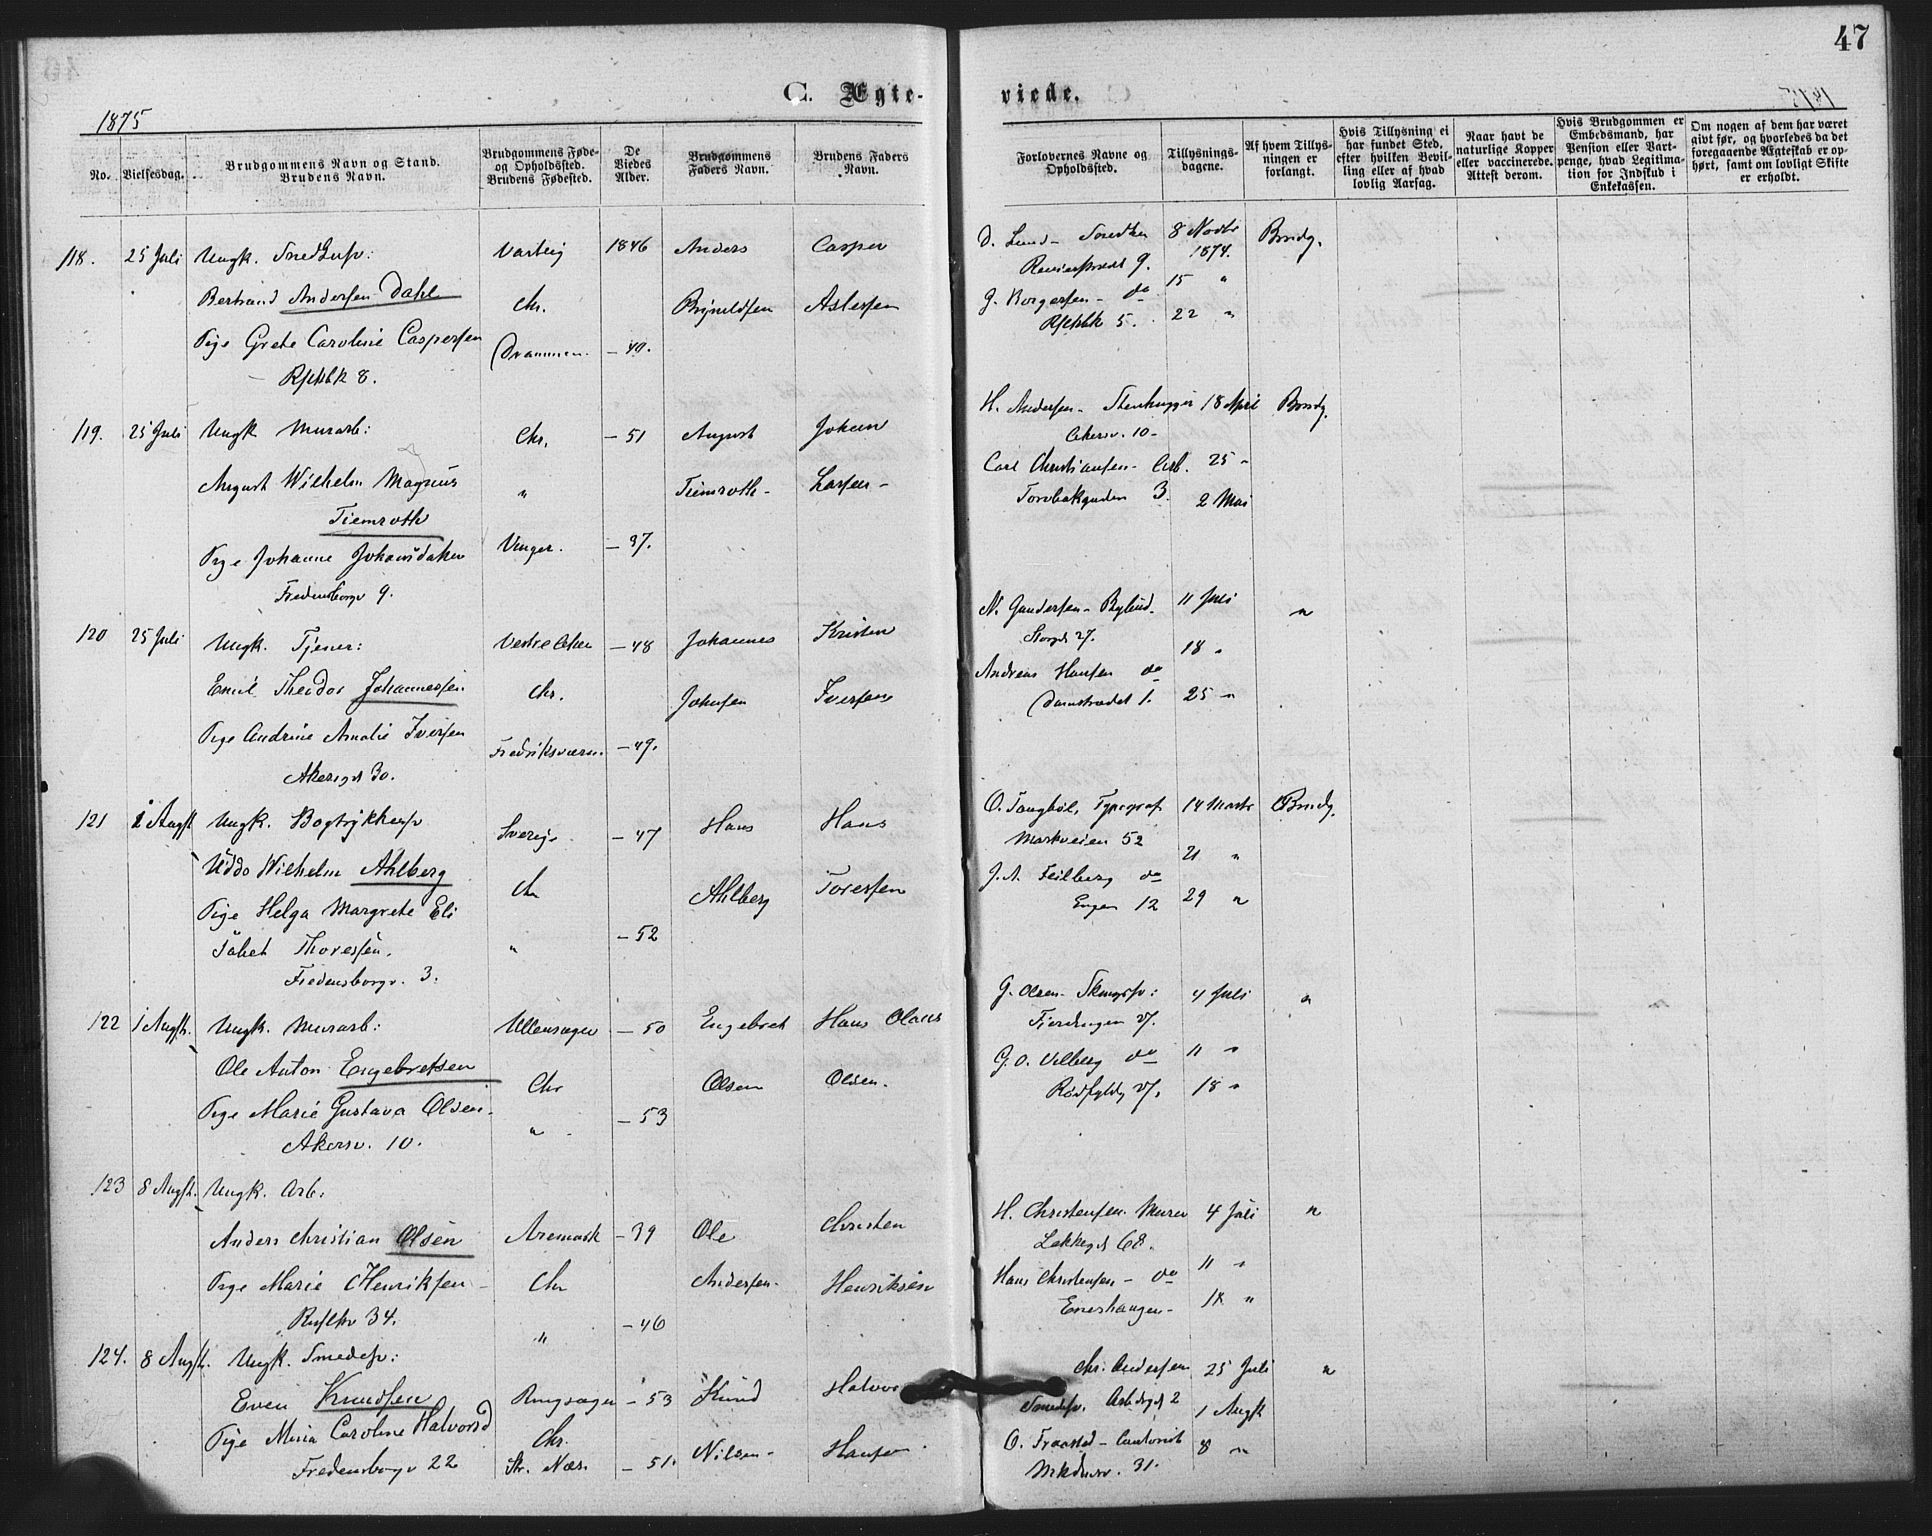 47
C. Ægteviede.
1875
No.
Vielsesdag.
Brudgommens Navn og Stand.
Brudens Navn.
Brudgommens Føde-
og Opholdssted.
Brudens Fødested.
De
Viedes
Alder.
Brudgommens
Faders Navn.
Brudens Faders
Navn.
Forlovernes Navne og
Opholdssted.
Tillysnings-
dagene.
Af hvem Tillys-
ningen er
forlangt.
Hvis Tillysning ei
har fundet Sted,
efter hvilken Bevil-
ling eller af hvad
lovlig Aarsag.
Naar havt de
naturlige Kopper
eller vaccinerede.
Attest derom.
Hvis Brudgommen er
Embedsmand, har
Pension eller Vart-
penge, hvad Legitima-
tion for Indskud i
Enkekassen.
Om nogen af dem har været
givt før, og hvorledes da det
foregaaende Ægteskab er op-
hørt, samt om lovligt Skifte
er erholdt.
118. 25 Juli Ungk. Varteig 1846 Anders Casper D. Lund 8 Novbr Brudg.
1874.
9.
Bertrand Andersen Dahl Chr. Aslesen 15 "
G. Borgersen - do
5. 22 "
Pige Grete Caroline Caspersen Drammen. - 49.
8.
119. 25 Juli Ungk Murarb: Chr. - 51 August Johan H. Andersen - Stenhugger 18 April Brudg.
Akersv. 10 -
August Wilhelm Magnus " Tiemroth - Larsen - Carl Christiansen - Arb. 25 "
3. 2 Mai
Tiemroth
Pige Johanne Johansdatter Vinger. - 37.
Fredensborgv 9.
120 25 Juli Ungk. Tjener: Vestre Aker - 48 Johannes Kristen N. Gundersen - Bybud. 11 Juli "
Storgd 27.
18 "
Emil Theodor Johannessen Chr. Johnsen Iversen Andreas Hansen do
1. 25 "
Pige Andrine Amalie Iversen Fredriksværn - 49.
Akersgd 30.
121 1 Augst Ungk. Sverige - 47 Hans Hans Typograf 14 Marts Brudg.
Markveien 52
21 "
Uddo Wilhelm Ahlberg Chr Ahlberg Toresen J. A. Feilberg do
Engen 12 29 "
Pige Helga Margrete Eli
sabet Thoresen. " - 52
Fredensborgv. 3.
122 1 Augst. Ungk. Murarb: Ullensager - 50 Engebret Hans Olaus G. Olsen - 4 Juli "
27.
Ole Anton Engebretsen Chr Olsen Olsen. G. O. Vilberg do 11 "
27. 18 "
Pige Marie Gustava Olsen. " - 53
Akersv. 10.
123 8 Augst. Ungk. Arb:
Anders Christian Olsen Aremark - 39 Ole Christen H. Christensen Murer 4 Juli "
Lakkegd 68.
Pige Marie Henriksen Chr Andersen - Henriksen Hans Christensen - do 11 "
Eneshaugen - 18 "
34. " - 46
124. 8 Augst. Ungk. Smedesv: Chr. Andersen 25 Juli "
Even Knudsen Ringsager - 53 Knud Smedesv. Arbdsgd 2 1 Augst
Pige Maria Caroline Halvorsd Chr.
Fredensborgv 22 Str. Næs. - 51. Nilsen - Hansen O. 8 "
31.